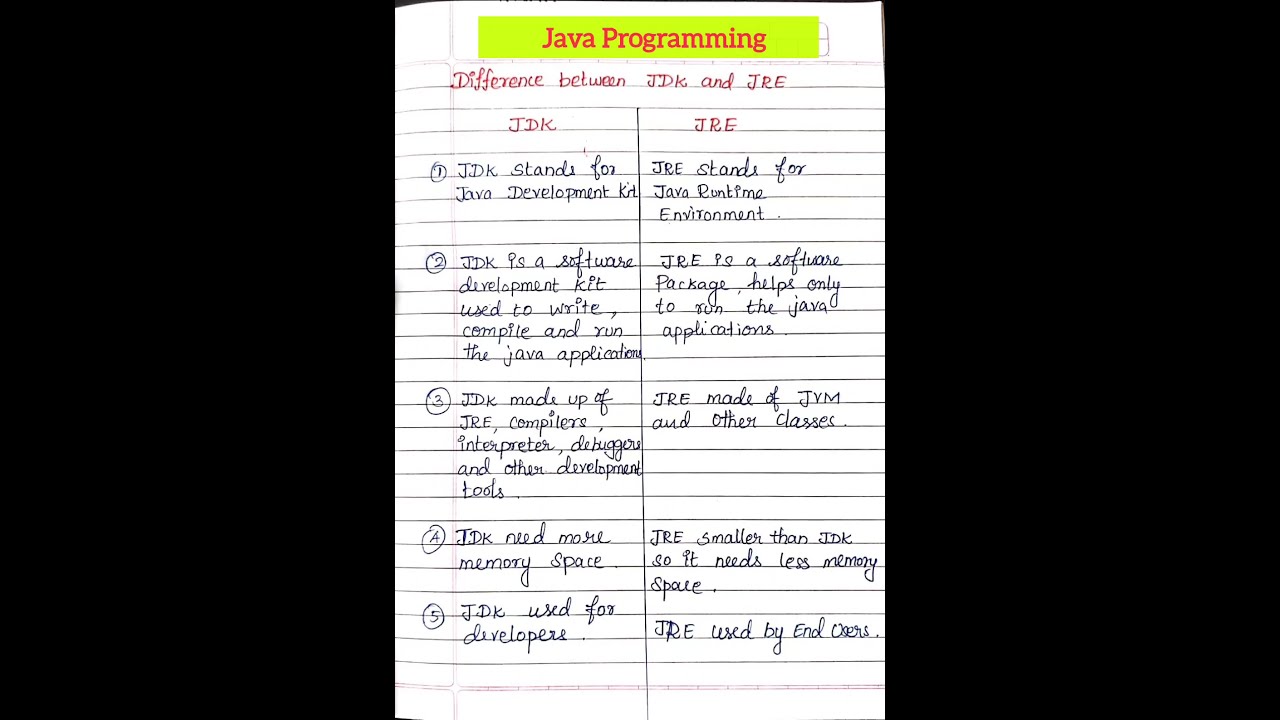 Java Programming
Difference between JDK and JRE
JDK
JRE
① JDK stands for
Java Development Kit
JRE stands for
Java Runtime
Environment.
② JDK is a software
development kit
used to write,
compile and run
the java applications.
JRE is a software
Package, helps only
to run the java
applications.
③ JDK made up of
JRE, compilers,
interpreter, debuggers
and other development
tools.
JRE made of JVM
and other classes.
④ JDK need more
memory space.
JRE smaller than JDK
so it needs less memory
space.
⑤ JDK used for
developers.
JRE used by End users.